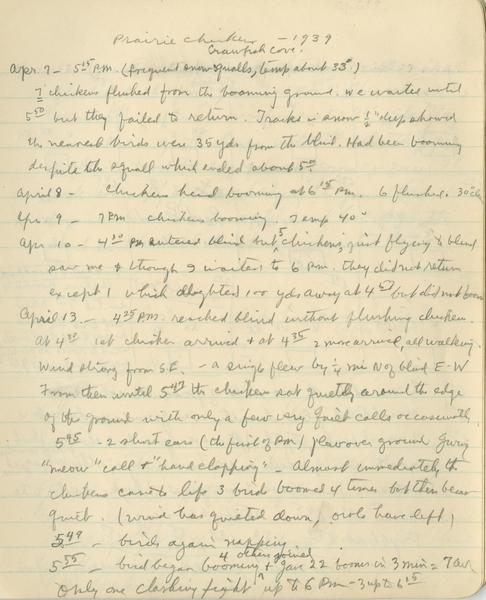 Prairie Chicken - 1939
Crawfish Cove.
Apr. 7 - 5 15 P.M. (frequent snow squalls, temp about 35°)
7 chickens flushed from the booming ground. We waited until
5 50 but they failed to return. Tracks in snow ½" deep showed
the nearest birds were 35 yds from the blind. Had been booming
despite the squall which ended about 5
April 8 - Chickens heard booming at 6 15 P.M. 6 flushed. 30°
Apr. 9 - 7 PM chickens booming. Temp 40°
Apr 10 - 4 30 PM entered blind but 5 chickens just flying to blind
saw me & though I waited to 6 P.M. they did not return
except 1 which alighted 100 yds away at 4 but did not boom
April 13 - 4 25 P.M. reached blind without flushing chicken.
At 4 1st chicken arrived & at 4 35 2 more arrived, all walking.
Wind strong from S.E. - a single flew by ¼ mi N of blind E-W
From then until 5 the chickens sat quietly around the edge
of the ground with only a few very quiet calls occasionally
5 45 - 2 short ears (the first of PM) flew over ground giving
"meow" call & "hand clapping" - Almost immediately the
chickens came to life 3 birds boomed 4 times but then became
quiet. (wind has quieted down, owls have left)
5 49 - birds again napping
5 55 - bird began booming & 4 others joined gave 22 booms in 3 min = 7 av
Only one clashing fight ^ up to 6 PM - 3 up to 6 15